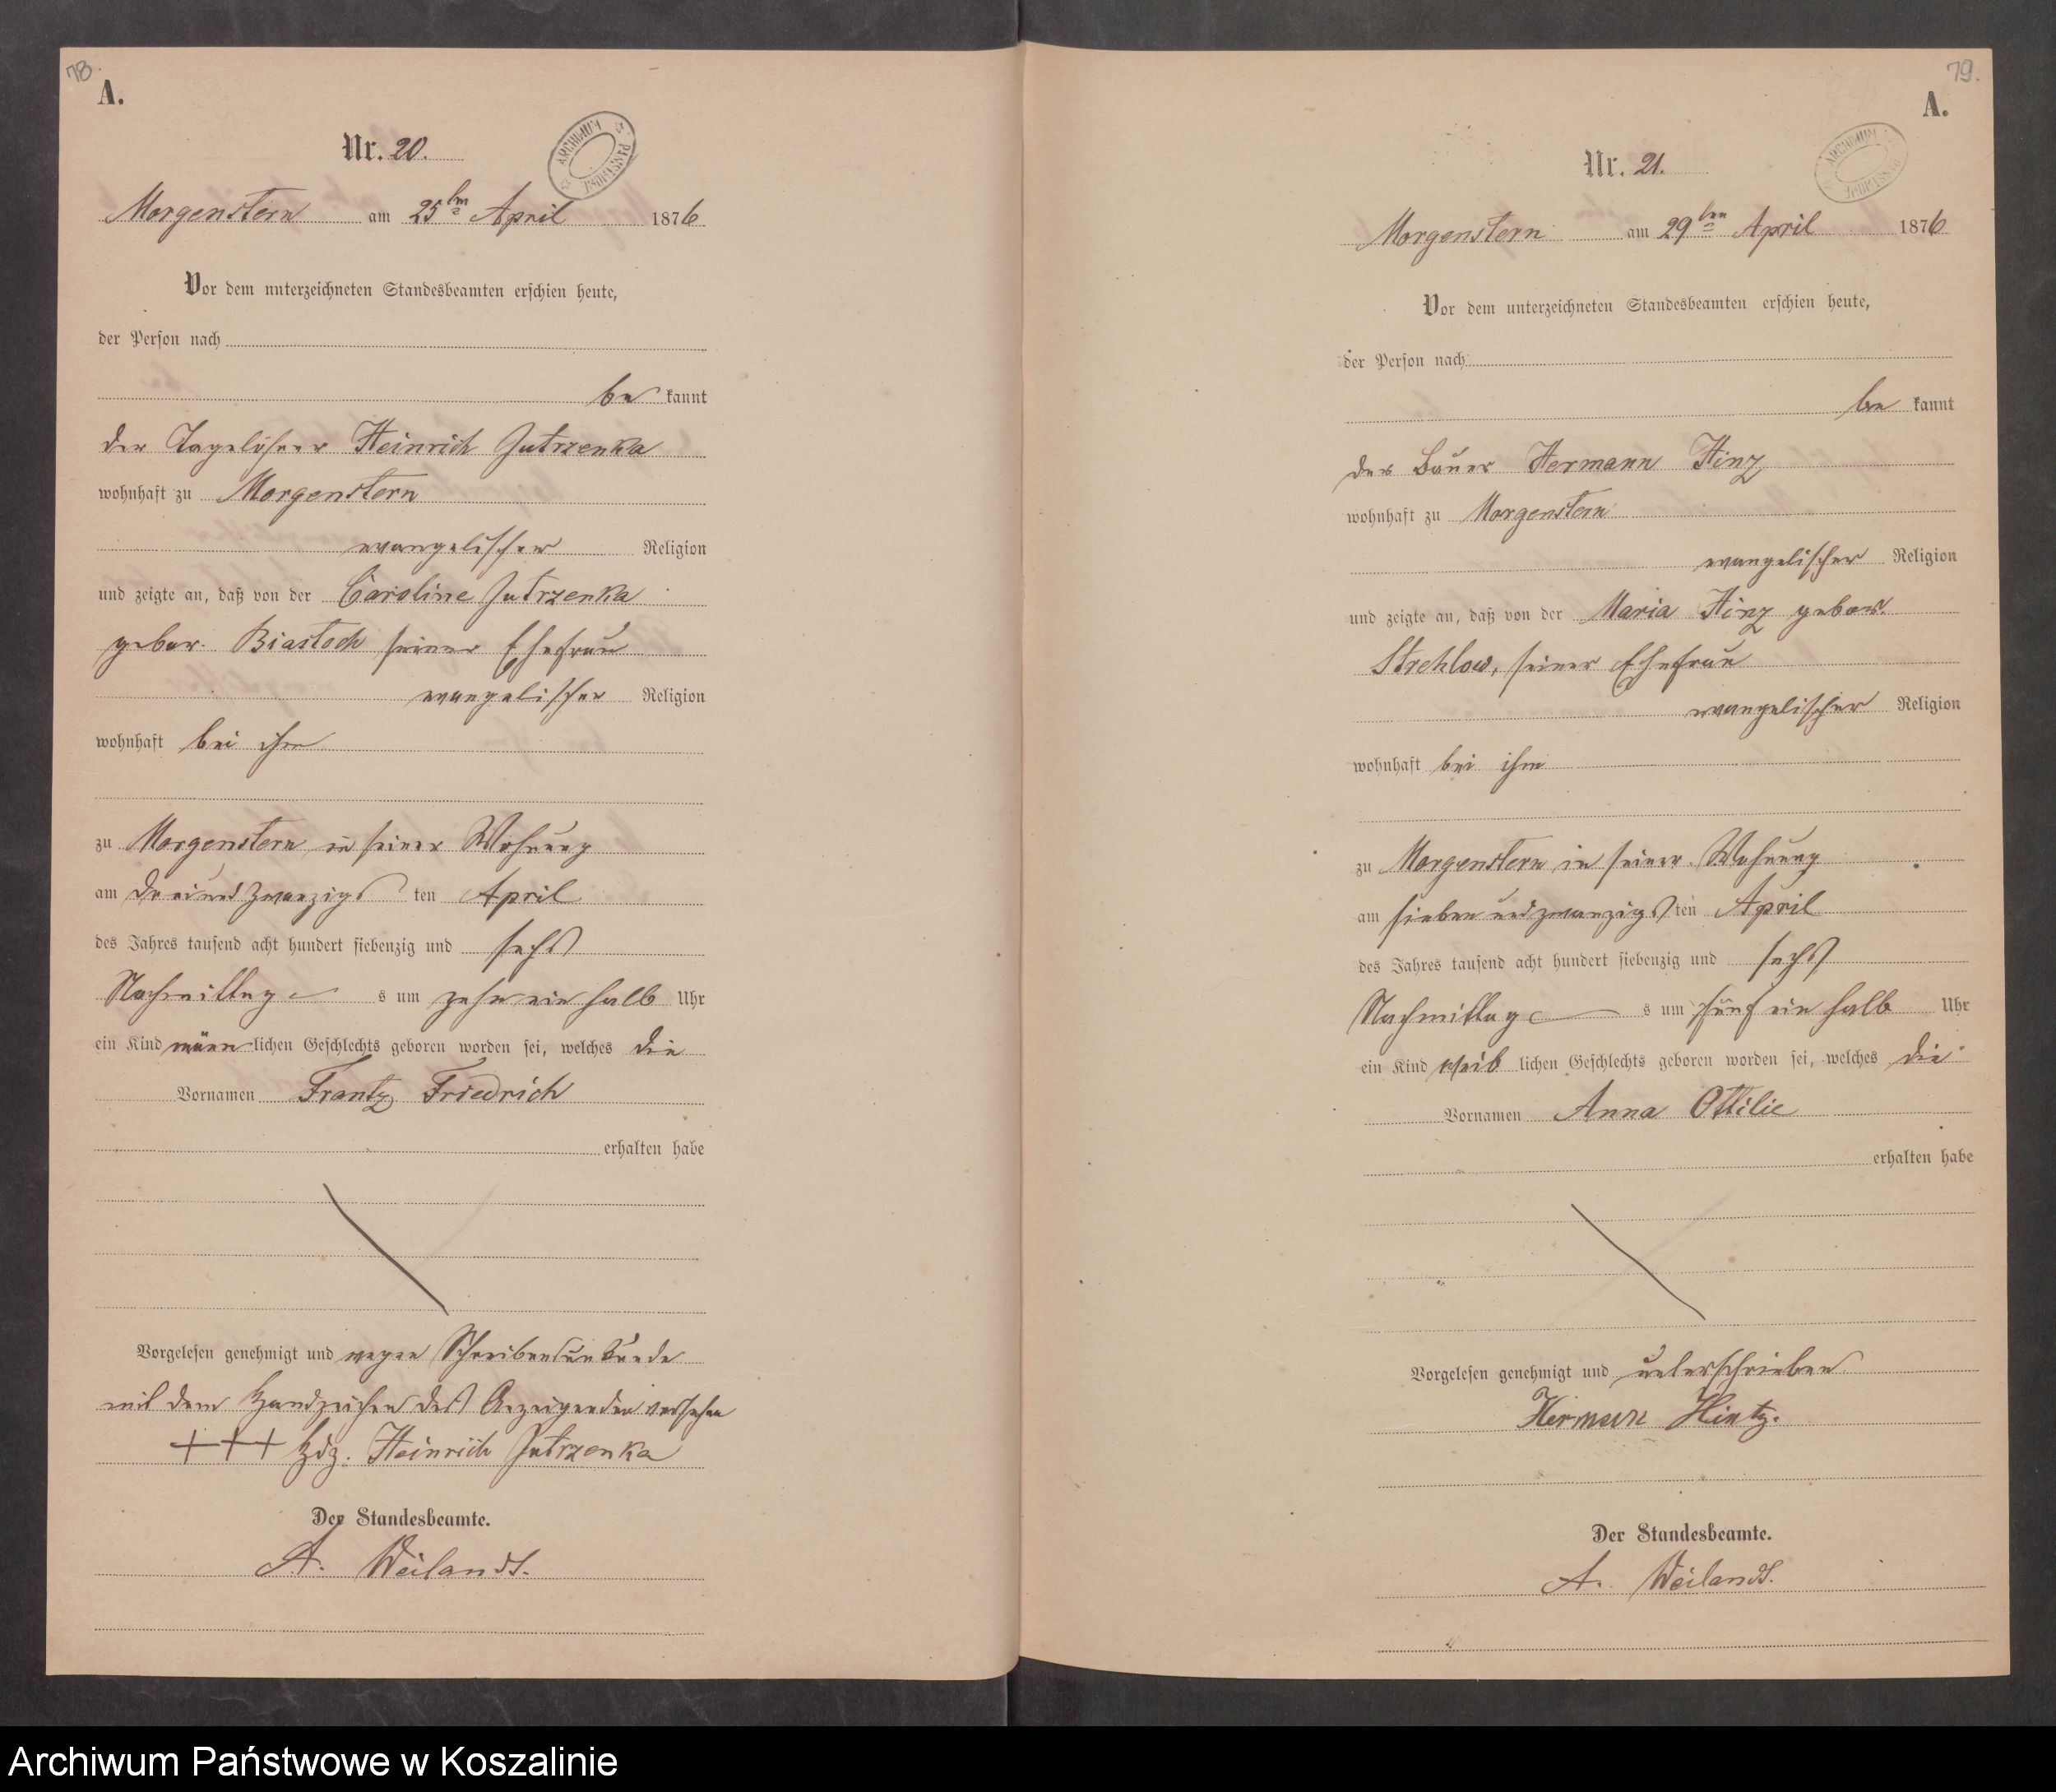 78.
A.
ARCHIWUM PAŃSTWOWE
Nr. 20.
Morgenstern am 25ten April 1876
Vor dem unterzeichneten Standesbeamten erschien heute,
der Person nach
be kannt
der Tagelöhner Heinrich Jutrzenka
wohnhaft zu Morgenstern
evangelischer Religion
und zeigte an, daß von der Caroline Jutrzenka
gebor. Biastoch seiner Ehefrau
evangelischer Religion
wohnhaft bei ihm
zu Morgenstern in seiner Wohnung
am dreiundzwanzigs ten April
des Jahres tausend acht hundert siebenzig und sechs
Nachmittag s um zehn ein halb Uhr
ein Kind männ lichen Geschlechts geboren worden sei, welches die
Vornamen Frantz Friedrich
erhalten habe
Vorgelesen genehmigt und wegen Schreibensunkunde
mit dem Handzeichen des Anzeigenden versehen
+++ Hdz. Heinrich Jutrzenka
Der Standesbeamte.
A. Weilandt.
79.
A.
ARCHIWUM PAŃSTWOWE
Nr. 21.
Morgenstern am 29ten April 1876
Vor dem unterzeichneten Standesbeamten erschien heute,
der Person nach
be kannt
der Bauer Hermann Hinz
wohnhaft zu Morgenstern
evangelischer Religion
und zeigte an, daß von der Maria Hinz gebor.
Strehlow, seiner Ehefrau
evangelischer Religion
wohnhaft bei ihm
zu Morgenstern in seiner Wohnung
am siebenundzwanzigs ten April
des Jahres tausend acht hundert siebenzig und sechs
Nachmittag s um fünf ein halb Uhr
ein Kind weib lichen Geschlechts geboren worden sei, welches die
Vornamen Anna Ottilie
erhalten habe
Vorgelesen genehmigt und unterschrieben
Hermann Hintz.
Der Standesbeamte.
A. Weilandt.
Archiwum Państwowe w Koszalinie